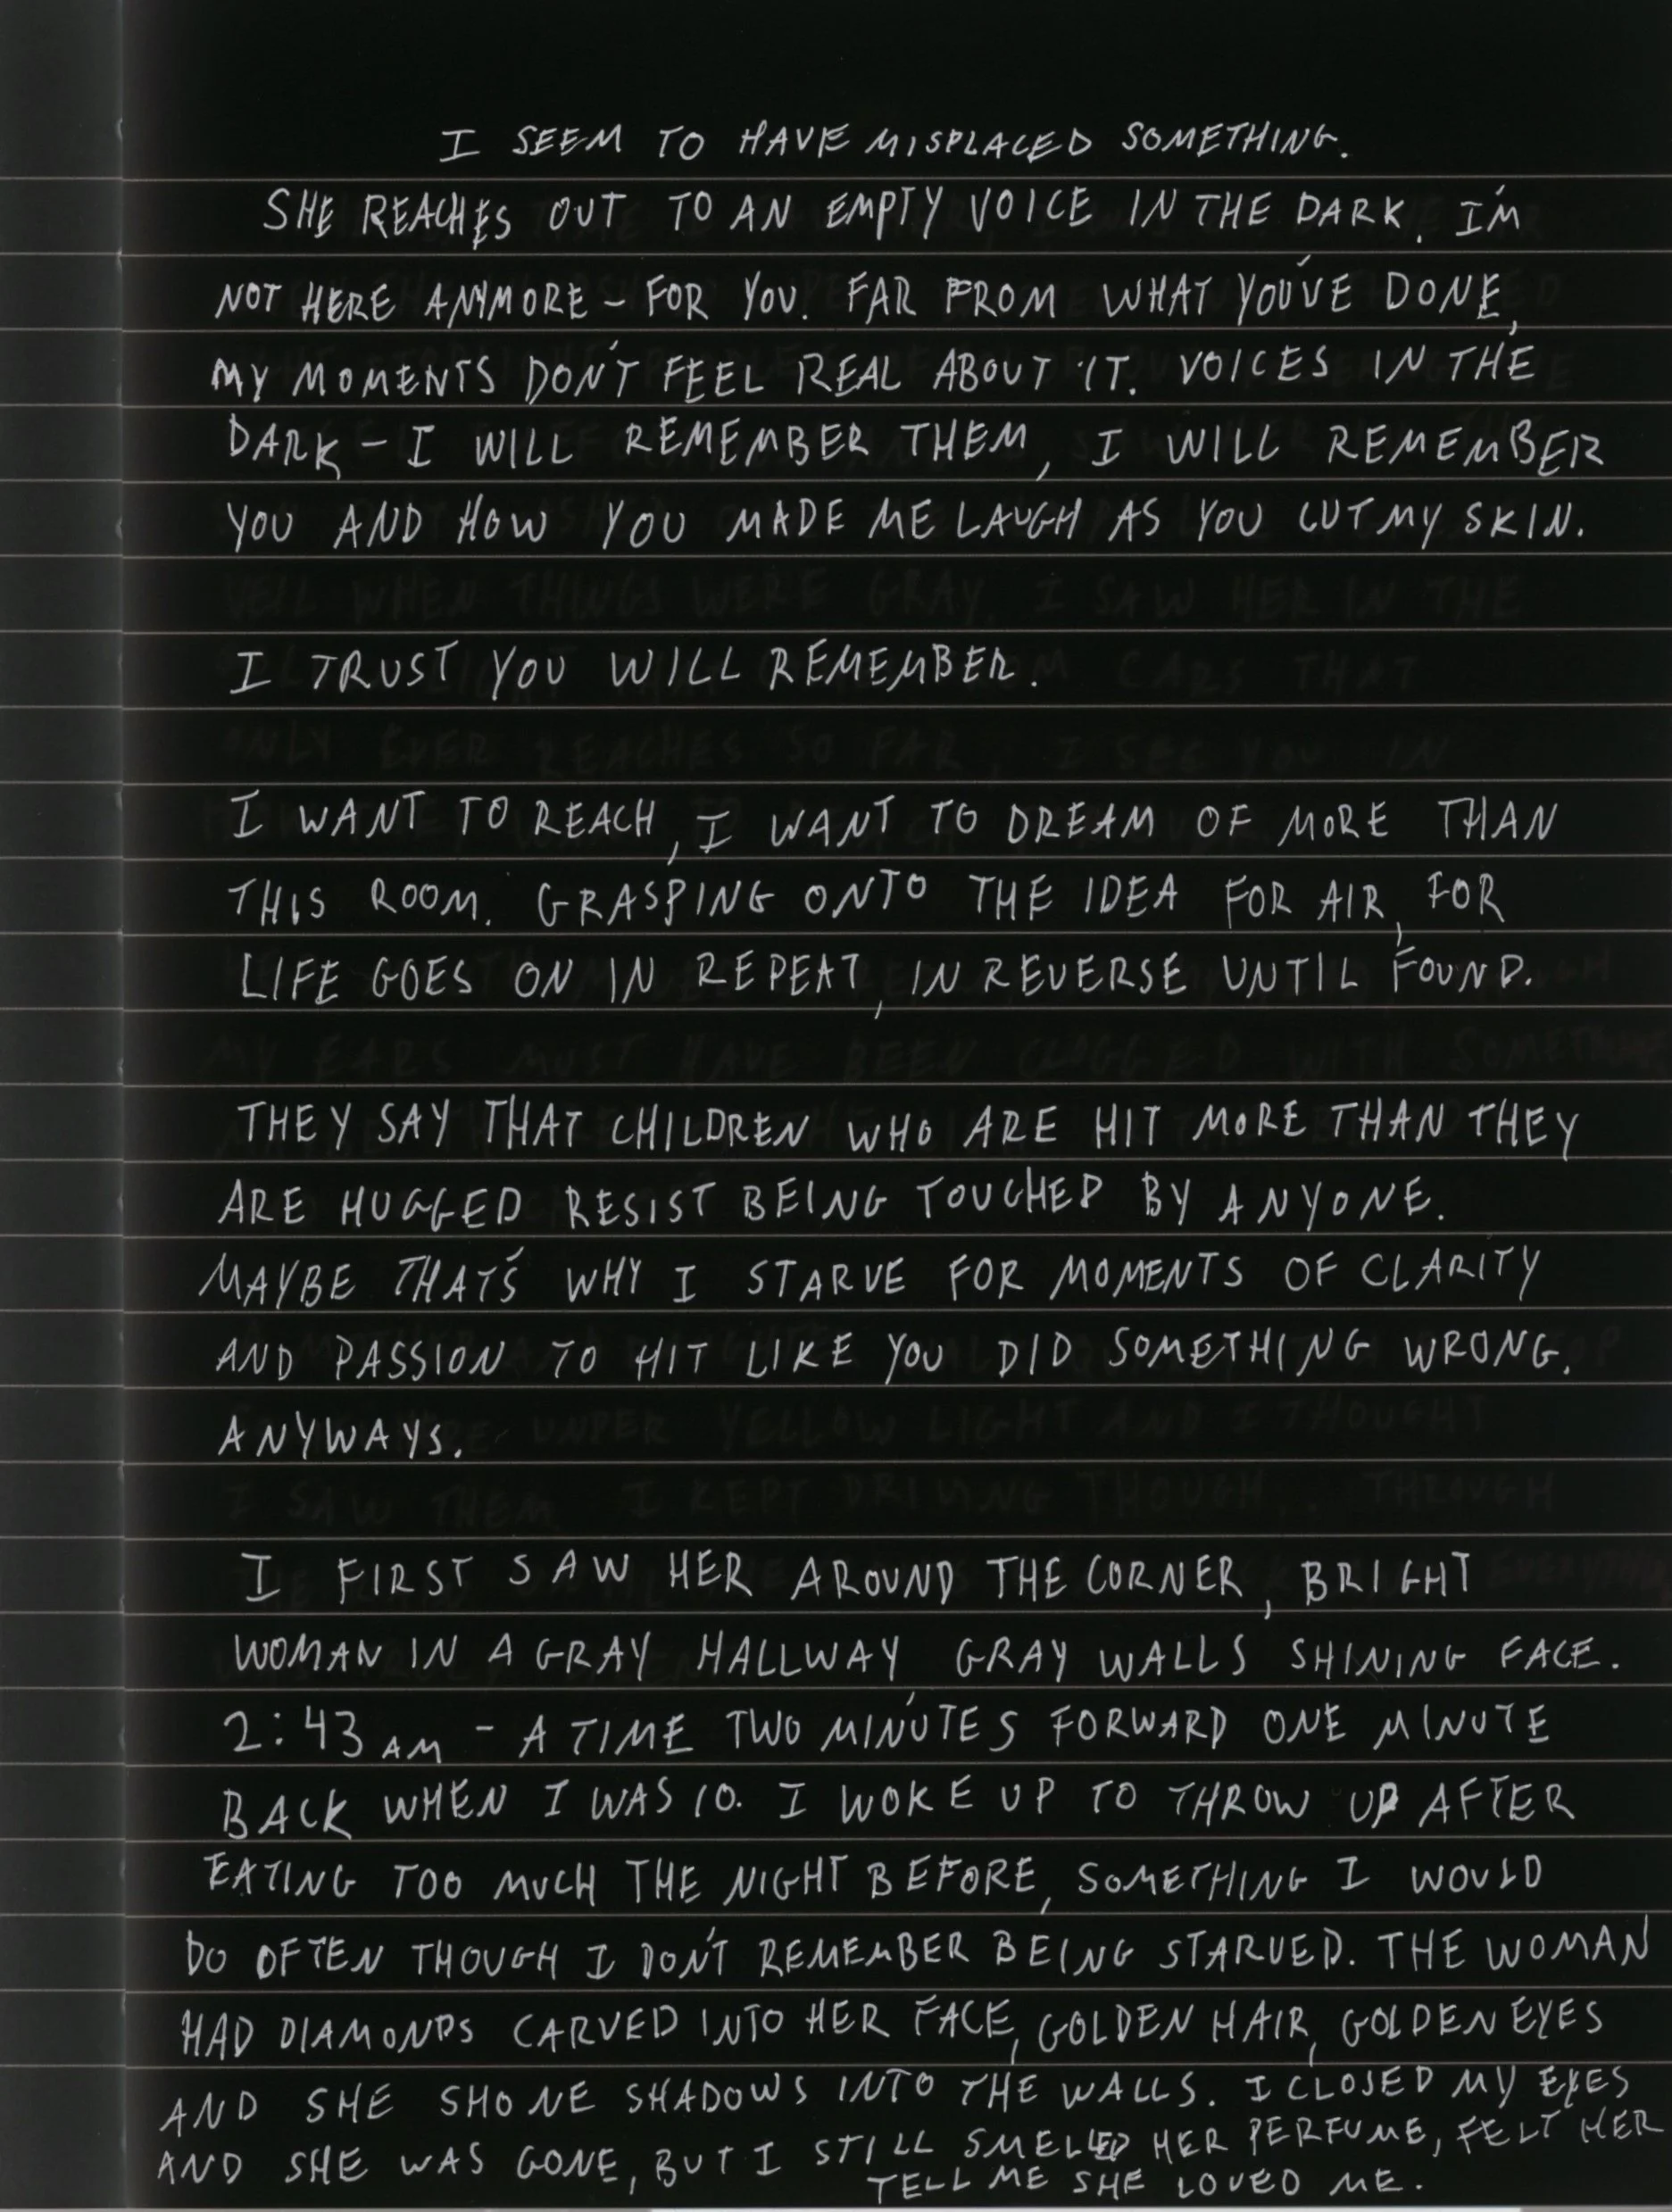 I SEEM TO HAVE MISPLACED SOMETHING.
SHE REACHES OUT TO AN EMPTY VOICE IN THE DARK. I'M
NOT HERE ANYMORE - FOR YOU. FAR FROM WHAT YOU'VE DONE,
MY MOMENTS DON'T FEEL REAL ABOUT IT. VOICES IN THE
DARK - I WILL REMEMBER THEM, I WILL REMEMBER
YOU AND HOW YOU MADE ME LAUGH AS YOU CUT MY SKIN.
WHEN THINGS WERE GRAY, I SAW HER IN THE
I TRUST YOU WILL REMEMBER.
CARS THAT
ONLY EVER REACHES SO FAR, I SEE YOU IN
I WANT TO REACH, I WANT TO DREAM OF MORE THAN
THIS ROOM. GRASPING ONTO THE IDEA FOR AIR, FOR
LIFE GOES ON IN REPEAT, IN REVERSE UNTIL FOUND.
MY EARS MUST HAVE BEEN CLOGGED WITH SOMETHING
THEY SAY THAT CHILDREN WHO ARE HIT MORE THAN THEY
ARE HUGGED RESIST BEING TOUCHED BY ANYONE.
MAYBE THAT'S WHY I STARVE FOR MOMENTS OF CLARITY
AND PASSION TO HIT LIKE YOU DID SOMETHING WRONG.
ANYWAYS.
UNDER YELLOW LIGHT AND I THOUGHT
I SAW THEM. I KEPT DRIVING THOUGH, THROUGH
I FIRST SAW HER AROUND THE CORNER, BRIGHT
WOMAN IN A GRAY HALLWAY GRAY WALLS SHINING FACE.
2:43 AM - A TIME TWO MINUTES FORWARD ONE MINUTE
BACK WHEN I WAS 10. I WOKE UP TO THROW UP AFTER
EATING TOO MUCH THE NIGHT BEFORE, SOMETHING I WOULD
DO OFTEN THOUGH I DON'T REMEMBER BEING STARVED. THE WOMAN
HAD DIAMONDS CARVED INTO HER FACE, GOLDEN HAIR, GOLDEN EYES
AND SHE SHONE SHADOWS INTO THE WALLS. I CLOSED MY EYES
AND SHE WAS GONE, BUT I STILL SMELLED HER PERFUME, FELT HER
TELL ME SHE LOVED ME.